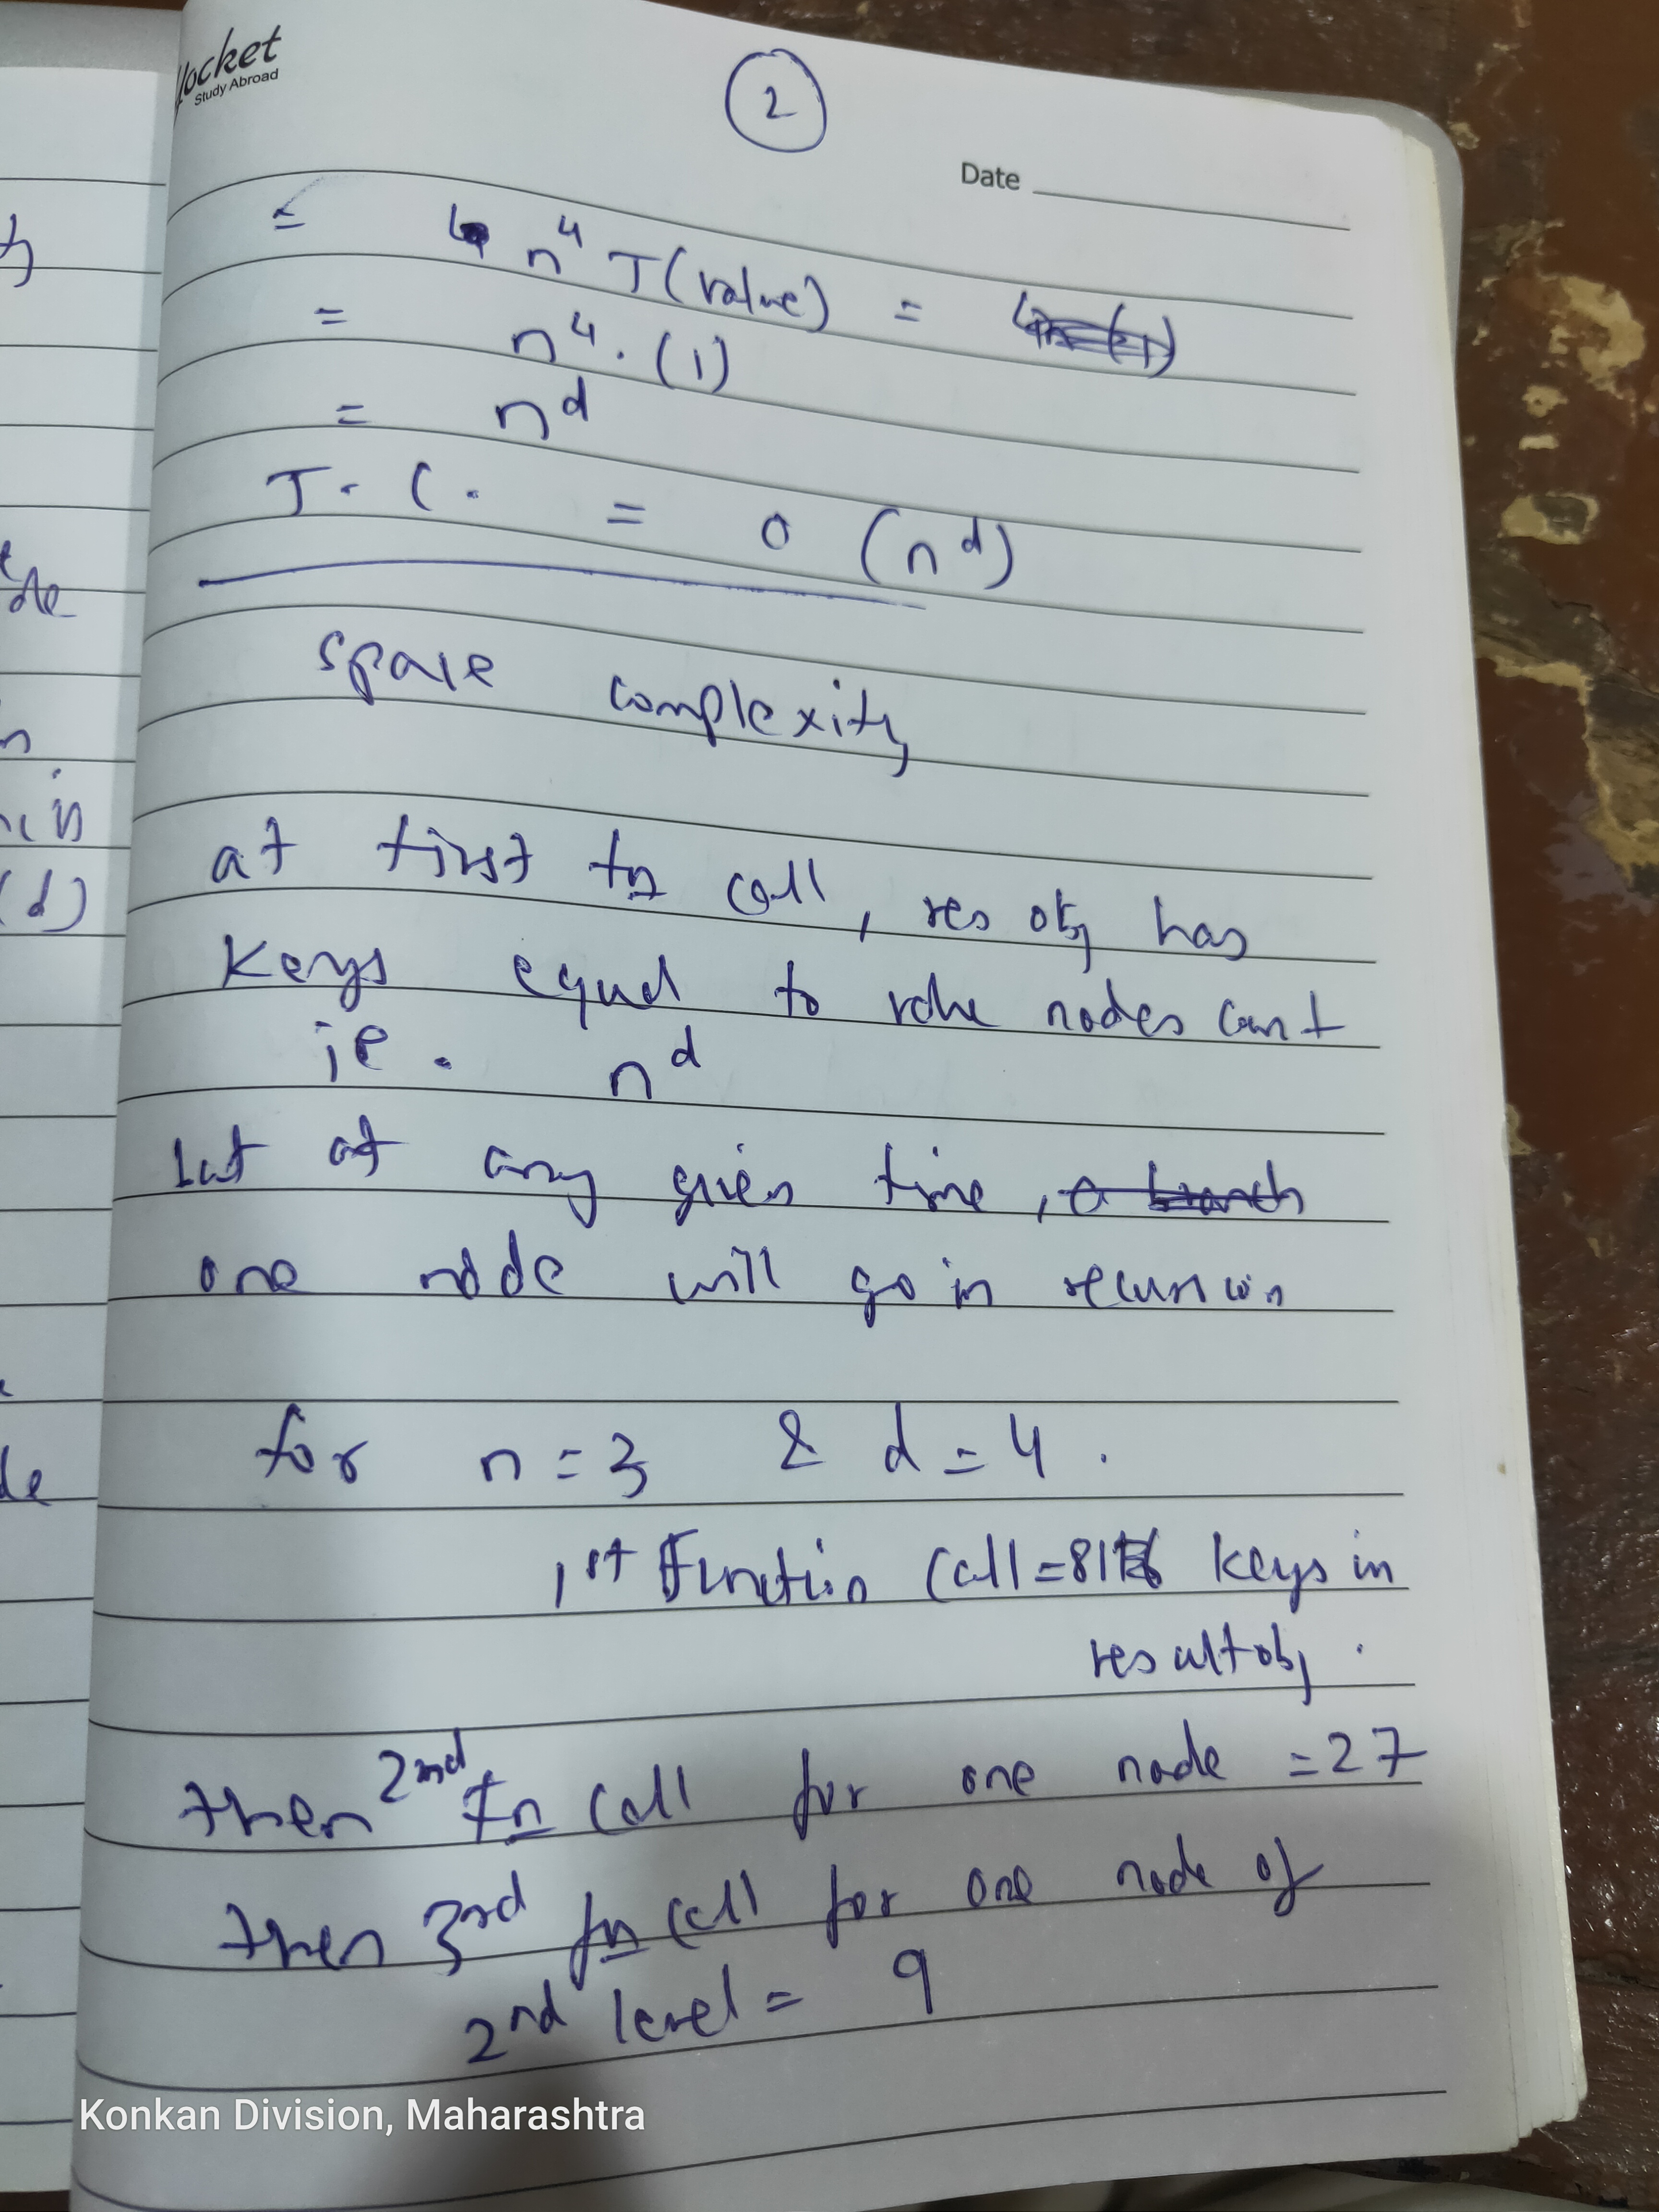 Yocket
Study Abroad
2
Date
= n⁴ T(value) =
= n⁴ . (1)
= n^d
T. C. = O (n^d)
space complexity
at first fn call, res obj has
keys equal to nodes count
ie. n^d
but at any given time,
one node will go in recursion
for n = 3 & d = 4 .
1st Function call = 81 keys in
result obj .
then 2nd fn call for one node = 27
then 3rd fn call for one node of
2nd level = 9
ty
de
n
(d)
de
Konkan Division, Maharashtra